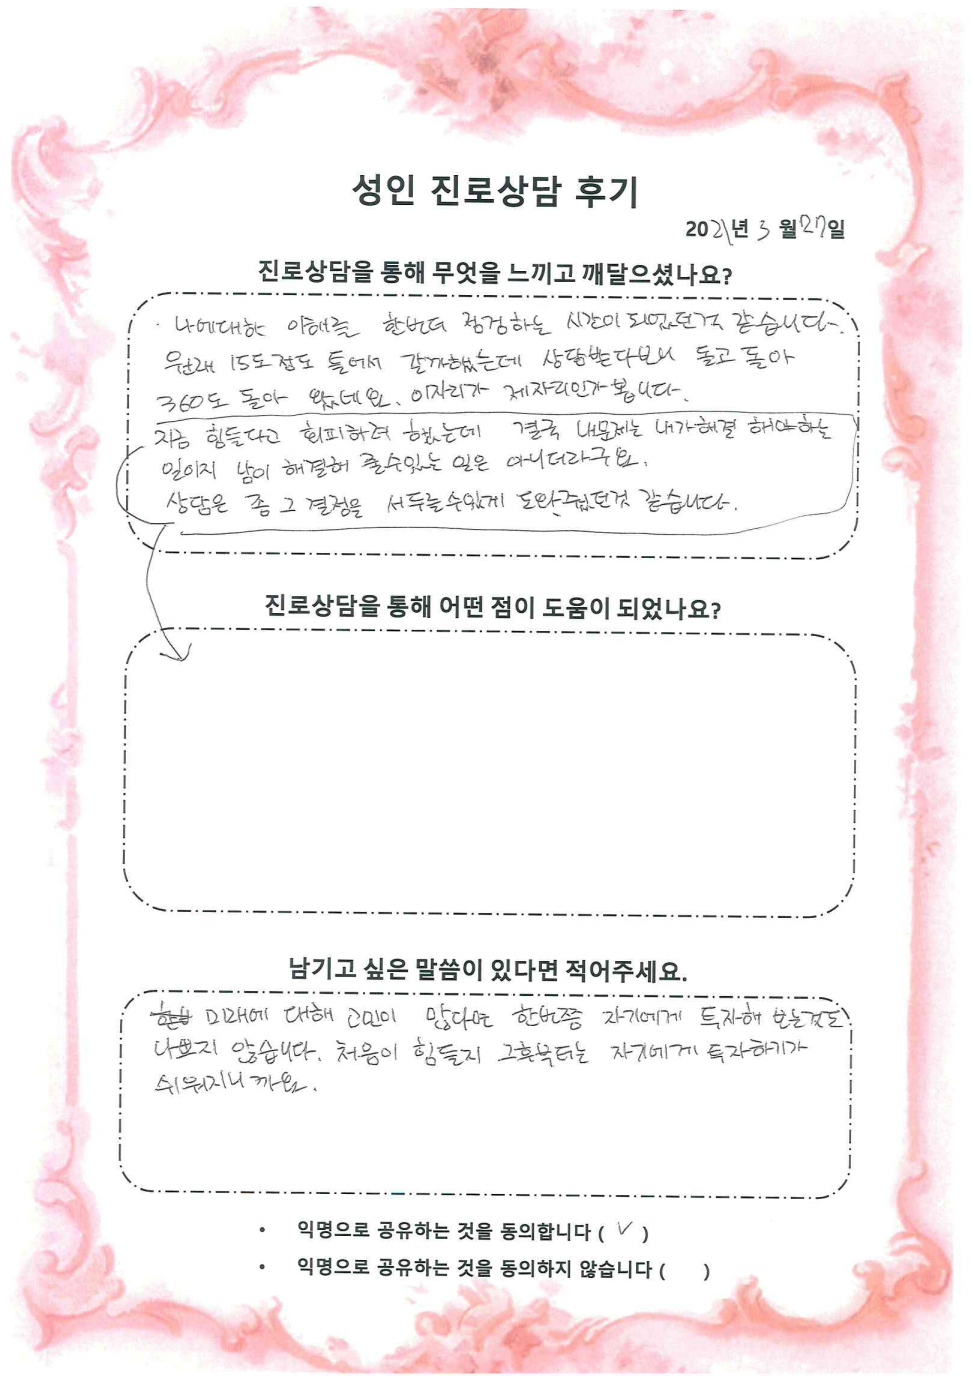 성인 진로상담 후기
2021년 3월 27일
진로상담을 통해 무엇을 느끼고 깨달으셨나요?
· 나에대한 이해를 한번더 점검하는 시간이 되었던것 같습니다.
원래 15도정도 틀어서 갈까했는데 상담받다보니 돌고 돌아
360도 돌아 왔네요. 이자리가 제자리인가 봅니다.
지금 힘들다고 회피하려 했는데 결국 내문제는 내가해결 해야하는
일이지 남이 해결해 줄수있는 일은 아니더라구요.
상담은 좀 그 결정을 서두를수있게 도와주었던것 같습니다.
진로상담을 통해 어떤 점이 도움이 되었나요?
남기고 싶은 말씀이 있다면 적어주세요.
미래에 대해 고민이 많다면 한번쯤 자기에게 투자해 보는것도
나쁘지 않습니다. 처음이 힘들지 그후부터는 자기에게 투자하기가
쉬워지니까요.
• 익명으로 공유하는 것을 동의합니다 ( √ )
• 익명으로 공유하는 것을 동의하지 않습니다 ( )